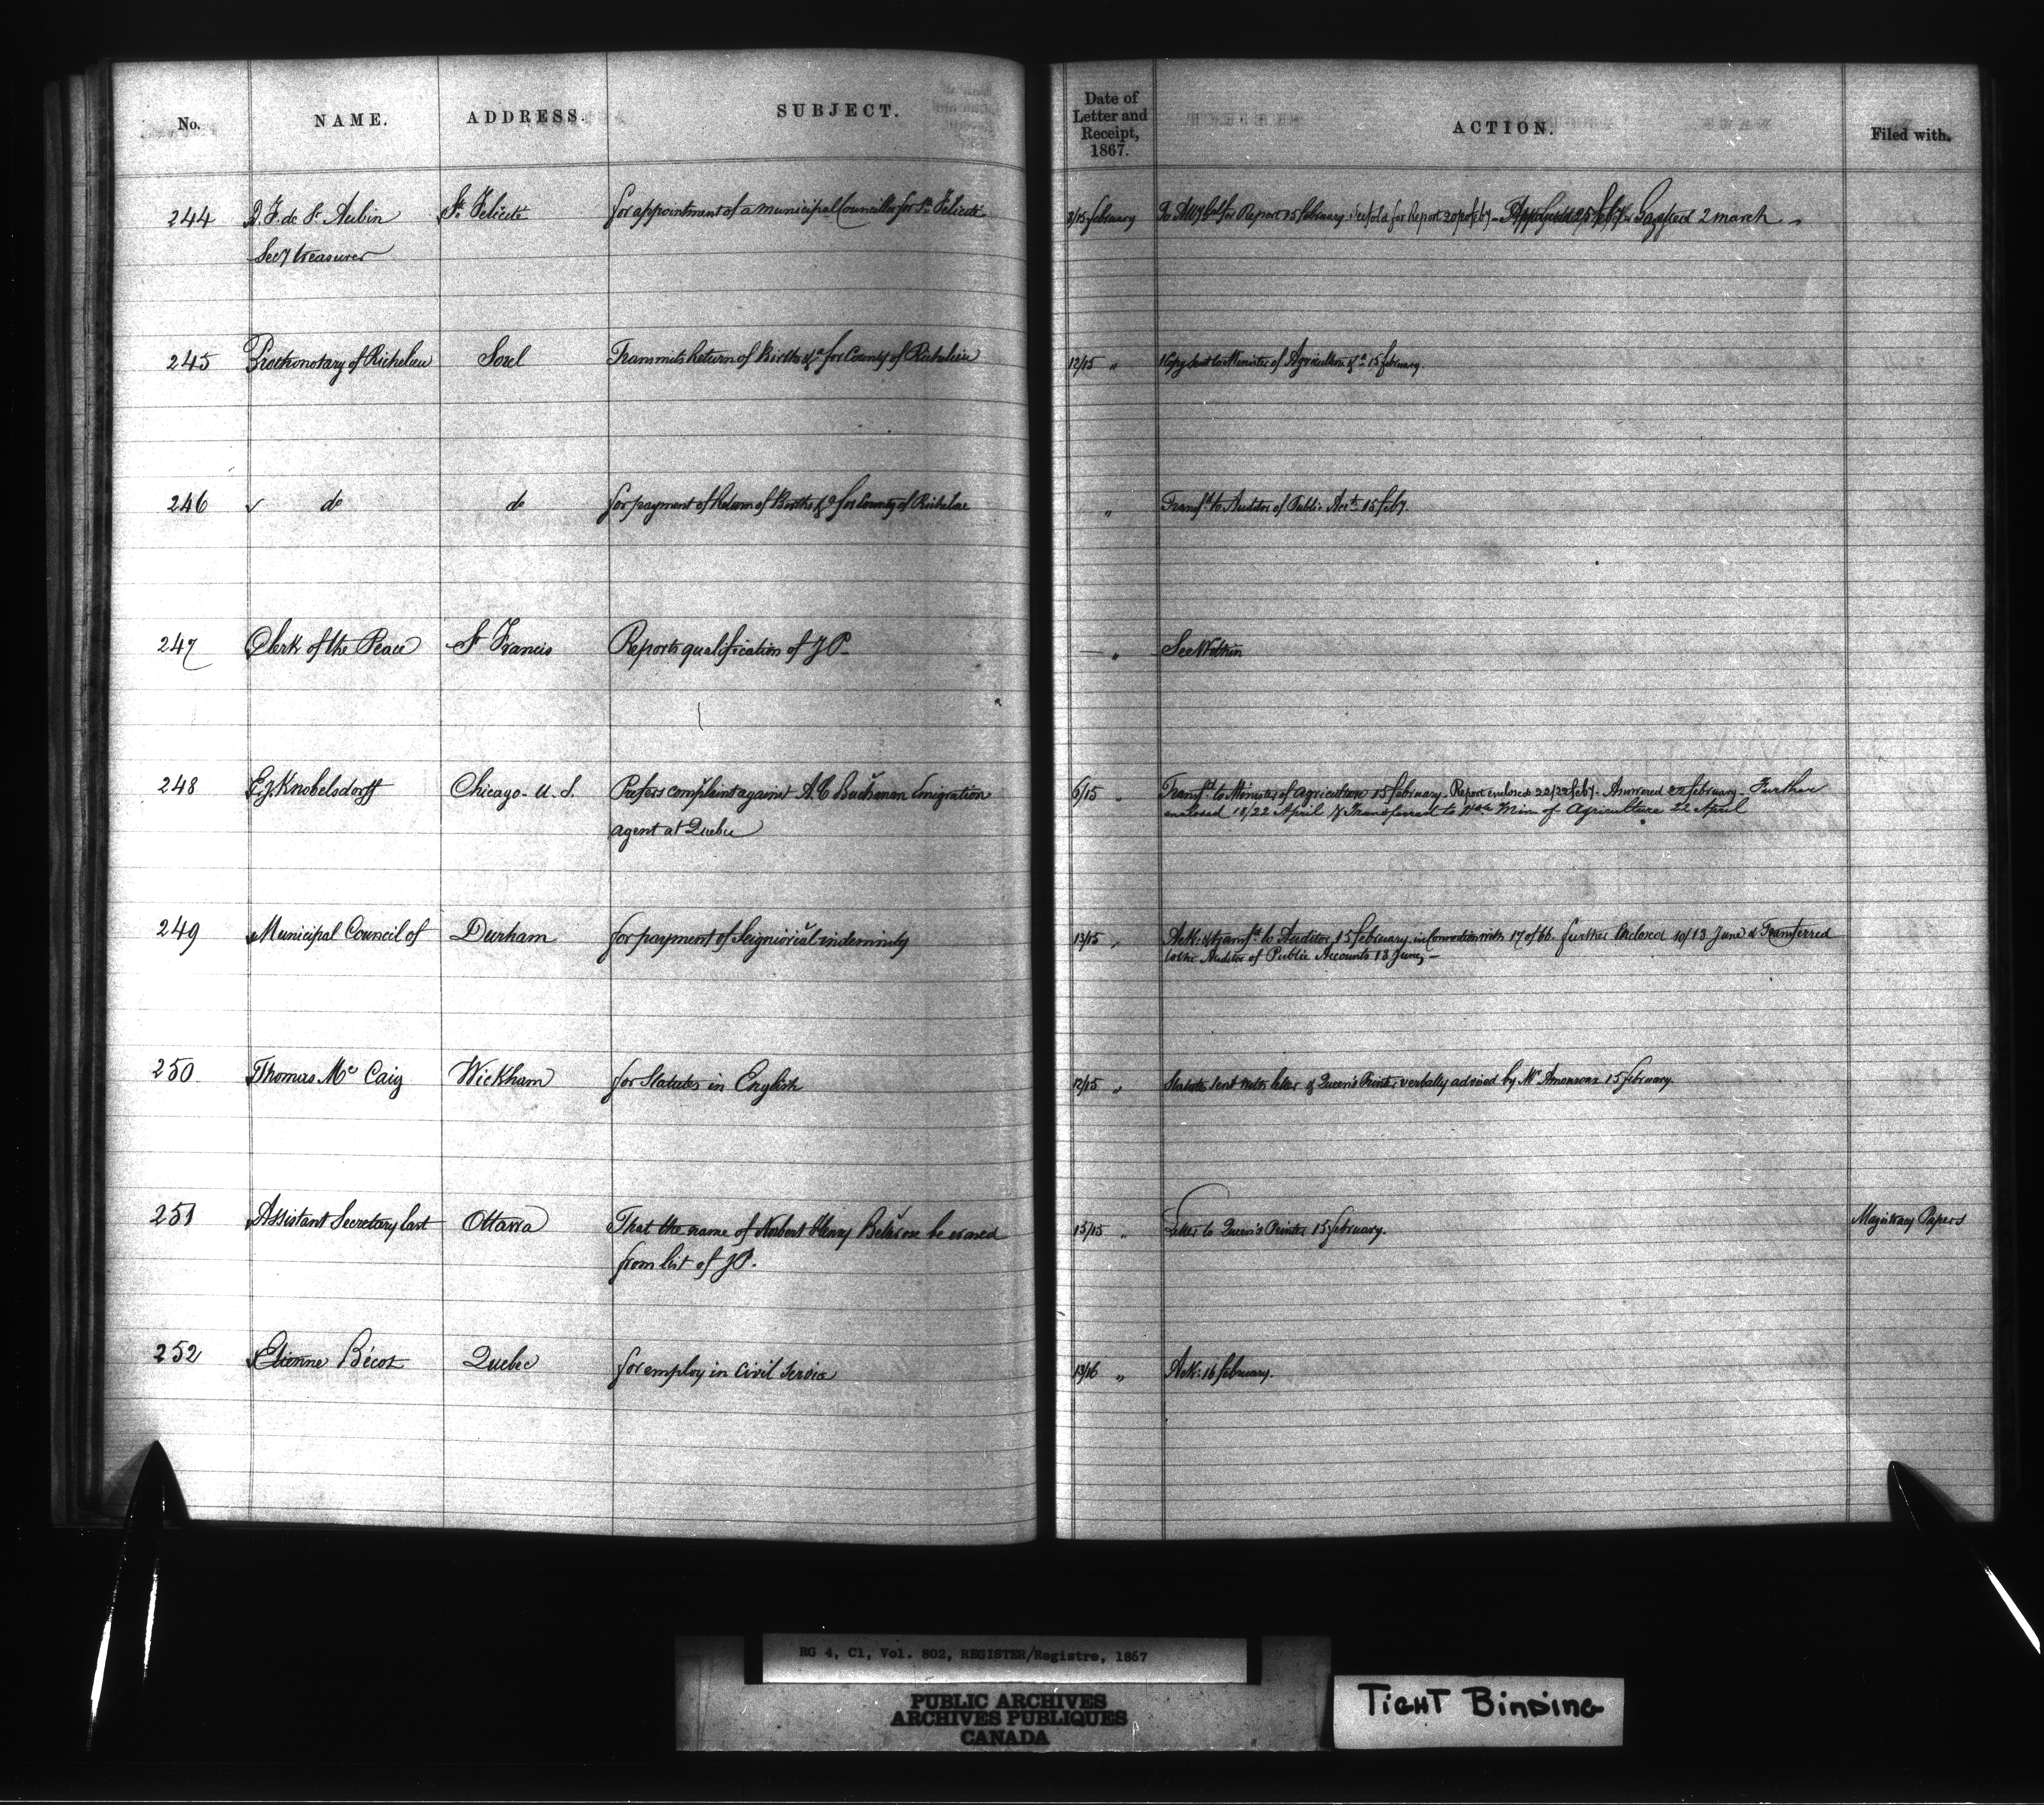 No. NAME. ADDRESS. SUBJECT. Date of Letter and Receipt, 1867. ACTION. Filed with.
244 D. F. de St Aubin St Felicité for appointment of a municipal Councillor for Ste Felicité 8/15 february for Report 15 february. for Report 20 feby Gazetted 2 march
Secy treasurer
245 Prothonotary of Richelieu Sorel Transmits Return of Births &a for County of Richelieu 12/15 „ Copy sent to Minister of Agriculture &a 15 february
246 do do for payment of Return of Births &a for County of Richelieu „ Transfd to Auditor of Public Accts 15 feby.
247 Clerk of the Peace St Francis Reports qualification of JP. — „ See Within
248 Knobelsdorff Chicago. U. S. Prefers complaint against A. C Buchanan Emigration 6/15 „ Transfd to Minister of agriculture 15 february. Report enclosed 22/22 feby. Answered 22 february. Further
agent at Quebec enclosed 18/22 April & Transferred to Hble Minr of Agriculture 22 April
249 Municipal Council of Durham for payment of Seigniorial indemnity 13/15 „ Ack: & transfd to Auditor 15 february in Connection with 17 of 66. further Enclosed 10/13 June & Transferred
to the Auditor of Public Accounts 13 June, —
250 Thomas Mc Caig Wickham for Statutes in English 12/15 „ Statutes sent with letter & Queen's Printer verbally advised by Mr 15 february.
251 Assistant Secretary East Ottawa That the name of Norbert Henry be erased 15/15 „ Letter to Queen's Printer 15 february. Magistracy Papers
from list of JP.
252 Etienne Bécot Quebec for employ in Civil Service 13/16 „ Ack: 16 february.
RG 4, C1, Vol. 802, REGISTER/Registre, 1867
PUBLIC ARCHIVES
ARCHIVES PUBLIQUES
CANADA
TIGHT BINDING